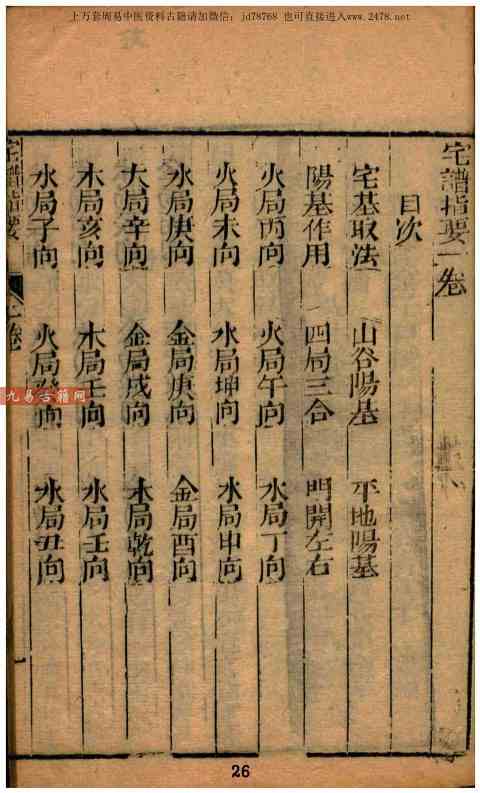 上万套周易中医资料古籍请加微信：jd78768 也可直接进入www.2478.net
宅譜指要一卷
目次
宅基取法 山谷陽基 平地陽基
陽基作用 四局三合 門開左右
火局丙向 火局午向 水局丁向
火局未向 水局坤向 水局申向
水局庚向 金局庚向 金局酉向
火局辛向 金局戌向 木局乾向
木局亥向 木局壬向 水局壬向
水局子向 火局癸向 水局丑向
宅譜指要
一卷
九易古籍网
26